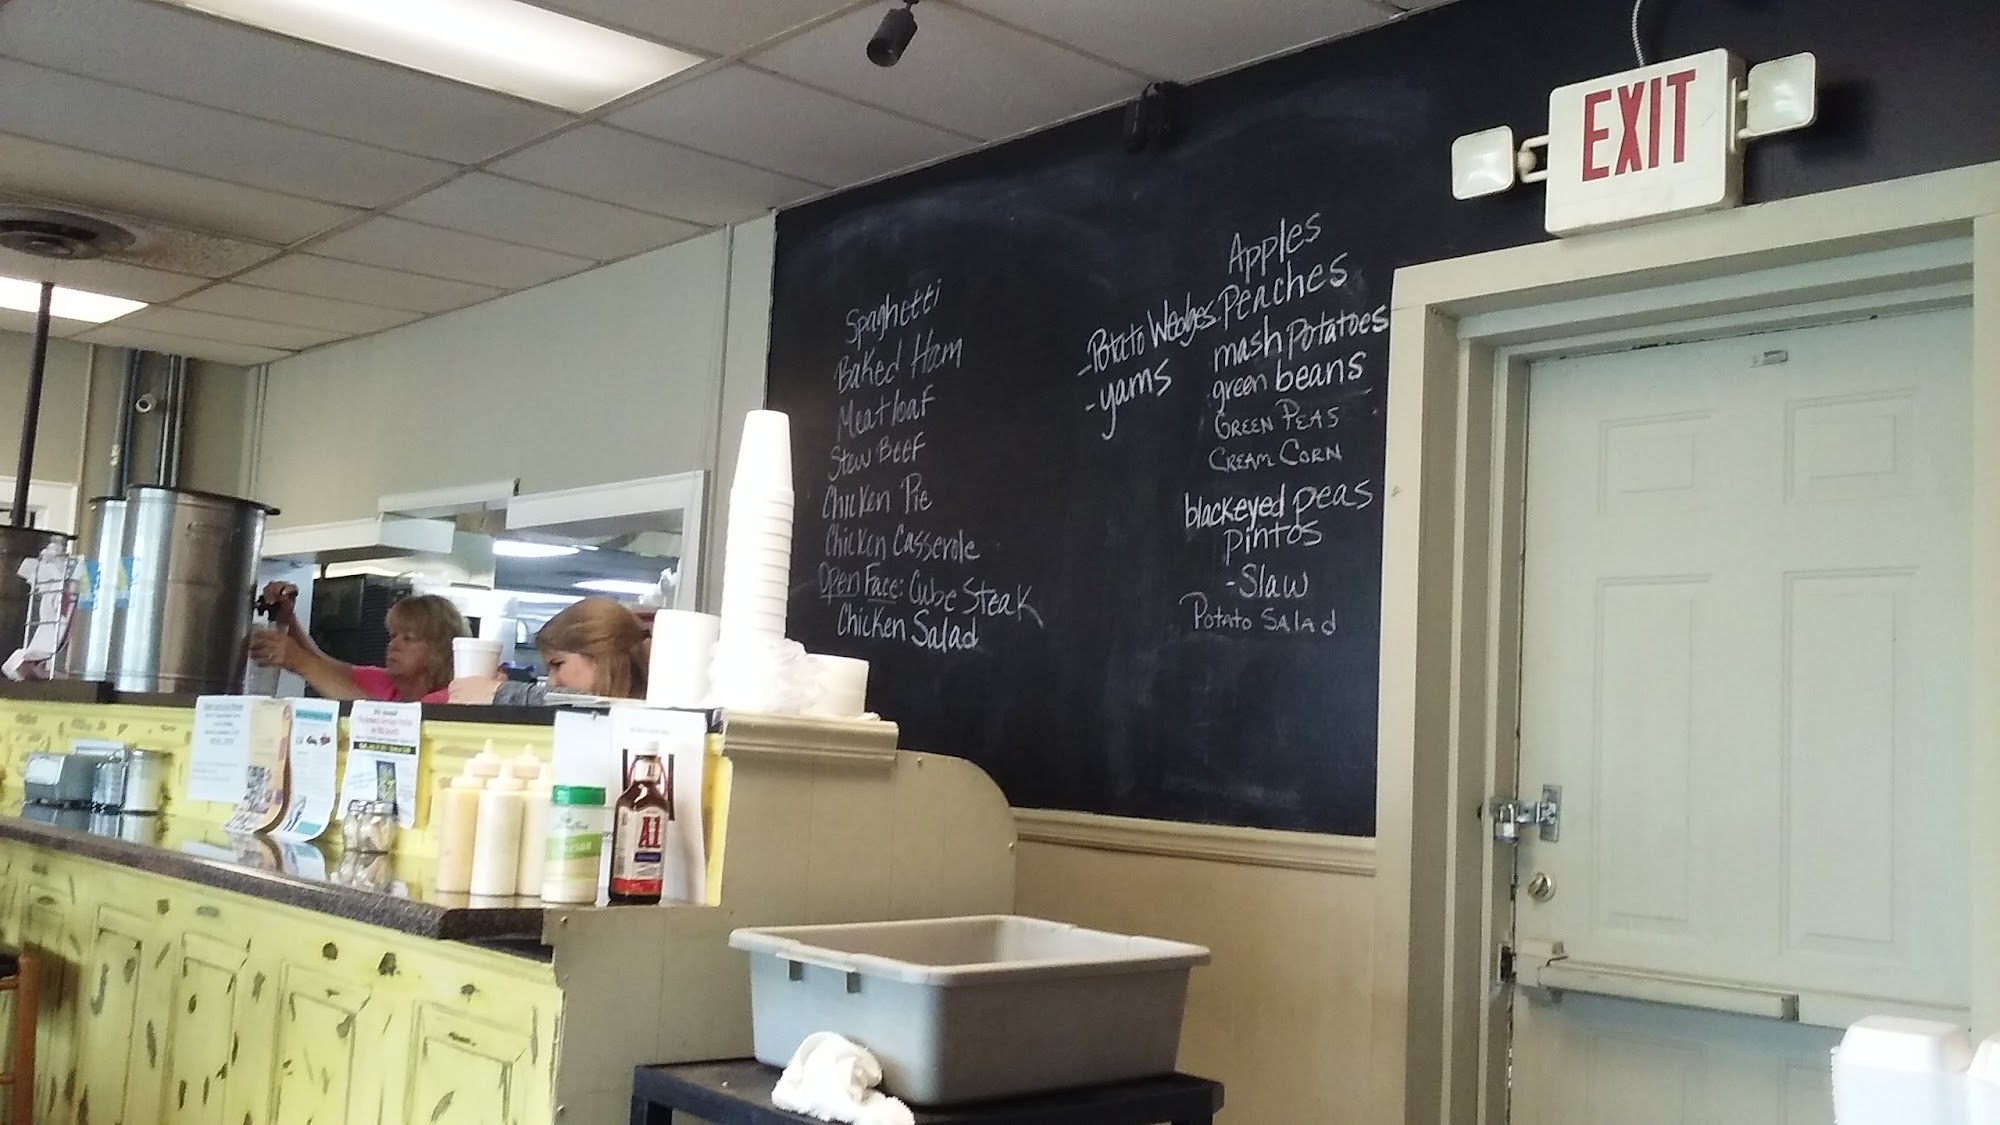 EXIT
Spaghetti
Baked Ham
Meatloaf
Stew Beef
Chicken Pie
Chicken Casserole
Open Face: Cube Steak
Chicken Salad
-Potato Wedges
-yams
Apples
Peaches
mash potatoes
green beans
GREEN PEAS
CREAM CORN
blackeyed peas
pintos
-Slaw
POTATO SALAD
A1